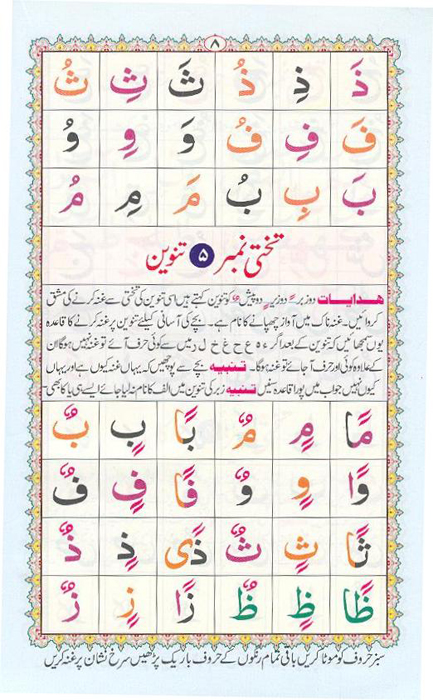 ۸
ذَ ذِ ذُ ثَ ثِ ثُ
فَ فِ فُ وَ وِ وُ
بَ بِ بُ مَ مِ مُ
تختی نمبر ۵ تنوین
ھدایات دو زبر ً دو زیر ٍ دو پیش ٌ کو تنوین کہتے ہیں اسی تنوین کی تختی سے غنہ کرنے کی مشق
کروائیں۔ غنہ ناک میں آواز چھپانے کا نام ہے۔ بچے کی آسانی کیلئے تنوین پر غنہ کرنے کا قاعدہ
یوں سمجھائیں کہ تنوین کے بعد اگر ء ہ ع ح غ خ ل ر میں سے کوئی حرف آئے تو غنہ نہیں ہوگا ان
کے علاوہ کوئی اور حرف آجائے تو غنہ ہوگا۔ تنبیہ بچے سے پوچھیں کہ یہاں غنہ کیوں ہے اور یہاں
کیوں نہیں جواب میں پورا قاعدہ سنیں تنبیہ زبر کی تنوین میں الف کا نام نہ لیا جائے ایسے ہی یا کا بھی
مًا مٍ مٌ بًا بٍ بٌ
وًا وٍ وٌ فًا فٍ فٌ
ثًا ثٍ ثٌ ذًی ذٍ ذٌ
ظًا ظٍ ظٌ زًا زٍ زٌ
سبز حروف کو موٹا کریں باقی تمام رنگوں کے حروف باریک پڑھیں سرخ نشان پر غنہ کریں